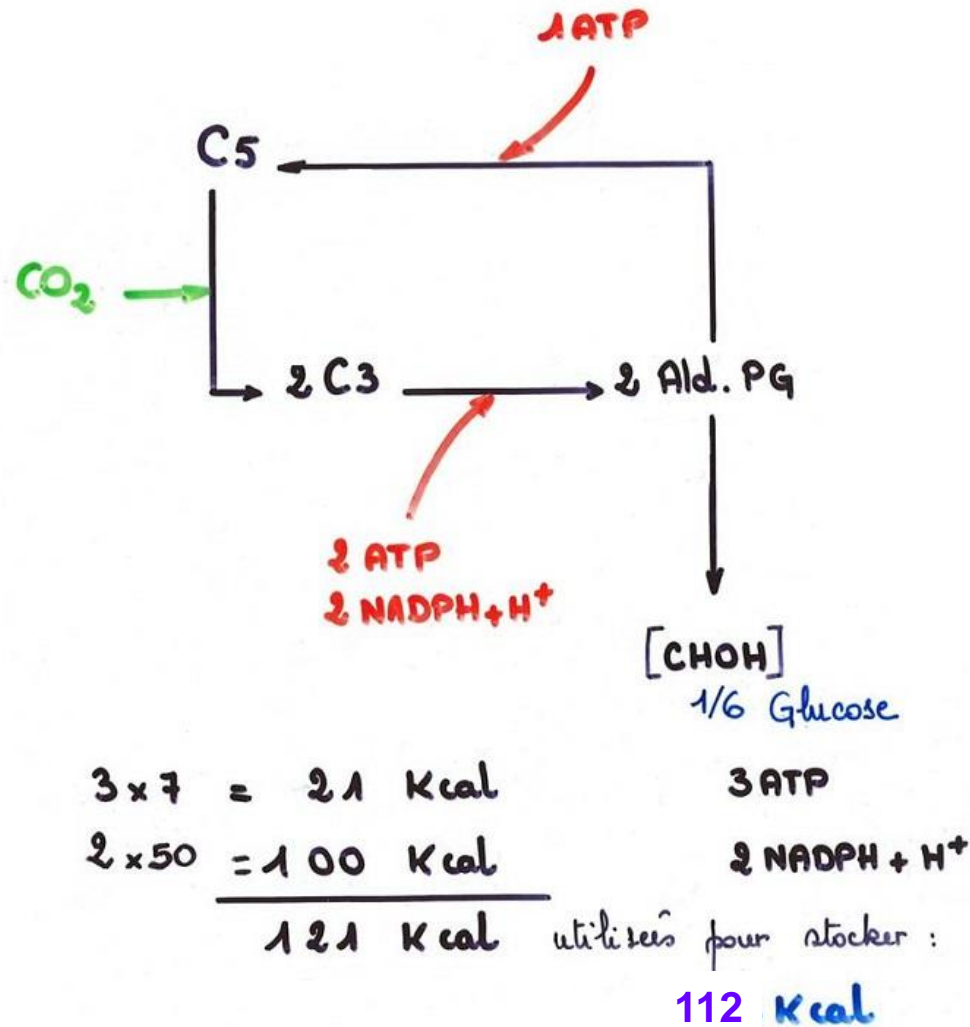 1 ATP
C5
CO₂
2 C3
2 Ald. PG
2 ATP
2 NADPH + H⁺
[CHOH]
1/6 Glucose
3 x 7 = 21 Kcal 3 ATP
2 x 50 = 100 Kcal 2 NADPH + H⁺
121 Kcal utilisées pour stocker :
112 Kcal